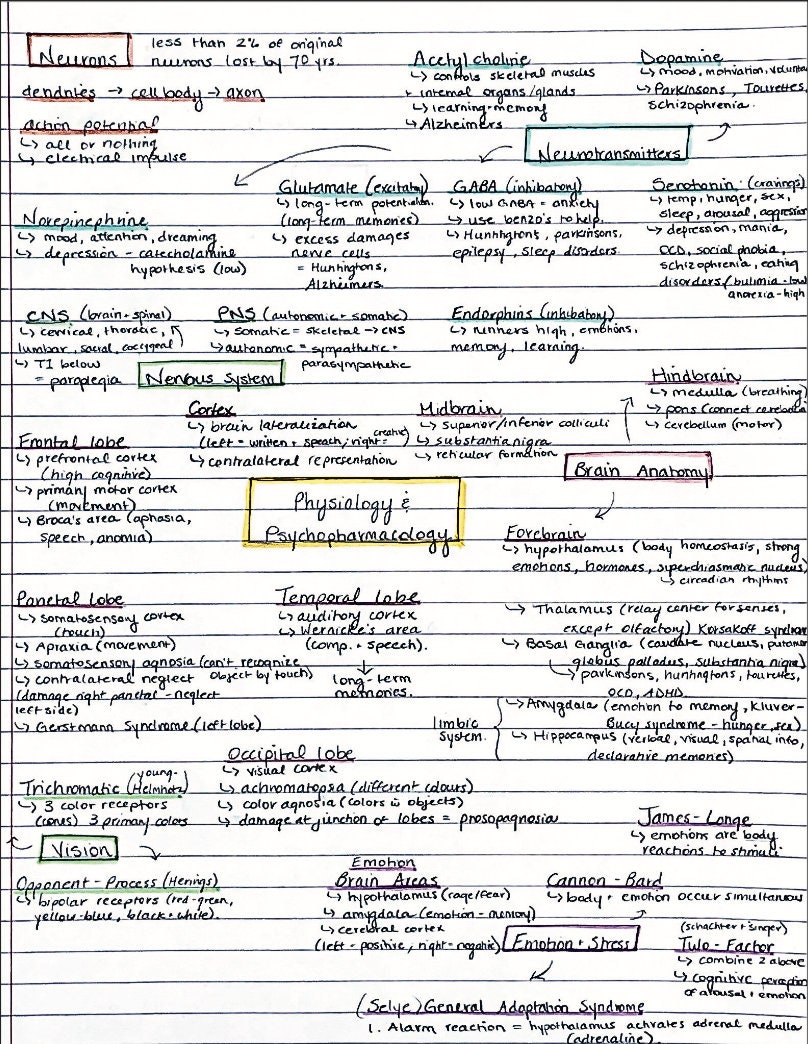 Neurons
less than 2% of original
neurons lost by 70 yrs.
dendrites → cell body → axon
action potential
↳ all or nothing
↳ electrical impulse
Acetylcholine
↳ controls skeletal muscles
+ internal organs/glands
↳ learning-memory
↳ Alzheimers
Dopamine
↳ mood, motivation,
↳ Parkinsons, Tourettes,
schizophrenia.
Neurotransmitters
Glutamate (excitatory)
↳ long-term potentiation.
(long-term memories)
↳ excess damages
nerve cells
= Huntingtons,
Alzheimers.
GABA (inhibatory)
↳ low GABA = anxiety
↳ use benzo's to help.
↳ Huntingtons, parkinsons,
epilepsy, sleep disorders.
Serotonin (cravings)
↳ temp, hunger, sex,
sleep, arousal, aggression
↳ depression, mania,
OCD, social phobia,
schizophrenia, eating
disorders/bulimia-low
anorexia-high
Norepinephrine
↳ mood, attention, dreaming
↳ depression - catecholamine
hypothesis (low)
CNS (brain + spinal)
↳ cervical, thoracic,
lumbar, sacral, coccygeal
↳ T1 below
= paraplegia
PNS (autonomic + somatic)
↳ somatic = skeletal → CNS
↳ autonomic = sympathetic +
parasympathetic
Endorphins (inhibatory)
↳ runners high, emotions,
memory, learning.
Nervous System
Hindbrain
↳ medulla (breathing)
↳ pons (connect
↳ cerebellum (motor)
Cortex
↳ brain lateralization
(left = written + speach; right = creative)
↳ contralateral representation
Midbrain
↳ superior/inferior colliculi
↳ substantia nigra
↳ reticular formation
Brain Anatomy
Frontal lobe
↳ prefrontal cortex
(high cognitive)
↳ primary motor cortex
(movement)
↳ Broca's area (aphasia,
speech, anomia)
Physiology &
Psychopharmacology
Forebrain
↳ hypothalamus (body homeostasis, strong
emotions, hormones, superchiasmatic nucleus)
↳ circadian rhythms
Parietal lobe
↳ somatosensory cortex
(touch)
↳ Apraxia (movement)
↳ somatosensory agnosia (can't recognize
object by touch)
↳ contralateral neglect
(damage right parietal - neglect
left side)
↳ Gerstmann Syndrome (left lobe)
Temporal lobe
↳ auditory cortex
↳ Wernicke's area
(comp. + speech).
↓
long-term
memories.
↳ Thalamus (relay center for senses,
except olfactory) Korsakoff syndrome
↳ Basal Ganglia (caudate nucleus, putamen
globus pallodus, substantia nigra)
↳ parkinsons, huntingtons, tourettes,
OCD, ADHD.
limbic
system.
↳ Amygdala (emotion to memory, Kluver-
Bucy syndrome - hunger, sex)
↳ Hippocampus (verbal, visual, spatial info,
declarative memories)
Occipital lobe
↳ visual cortex
↳ achromatopsa (different colours)
↳ color agnosia (colors is objects)
↳ damage at junction of lobes = prosopagnosia
Trichromatic (Young-
Helmhotz)
↳ 3 color receptors
(cones) 3 primary colors
Vision
Opponent-Process (Herings)
↳ bipolar receptors (red-green,
yellow-blue, black + white).
James-Lange
↳ emotions are body
reactions to stimuli
Emotion
Brain Areas
↳ hypothalamus (rage/fear)
↳ amygdala (emotion-memory)
↳ cerebral cortex
(left - positive, right = negative)
Cannon-Bard
↳ body + emotion occur simultaneous
Emotion + Stress
(schachter + singer)
Two-Factor
↳ combine 2 above
↳ cognitive perception
of arousal + emotion
(Selye) General Adaptation Syndrome
1. Alarm reaction = hypothalamus activates adrenal medulla
(adrenaline).